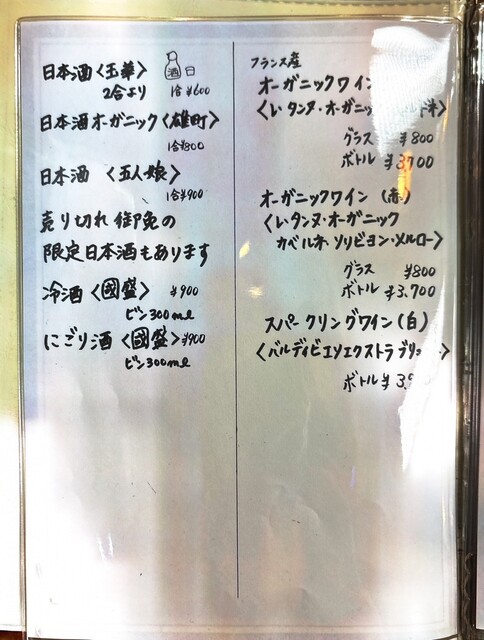 日本酒〈玉華〉
酒
2合より 1合¥600
日本酒オーガニック〈雄町〉
1合¥800
日本酒〈五人娘〉
1合¥900
売り切れ御免の
限定日本酒もあります
冷酒〈國盛〉 ¥900
ビン300ml
にごり酒〈國盛〉¥900
ビン300ml
フランス産
オーガニックワイン
〈レタンヌ・オーガニッ
グラス ¥800
ボトル ¥3,700
オーガニックワイン(赤)
〈レタンヌ・オーガニック
カベルネソリビヨン・メルロー〉
グラス ¥800
ボトル ¥3,700
スパークリングワイン(白)
〈バルディビエソエクストラブリュ
ボトル